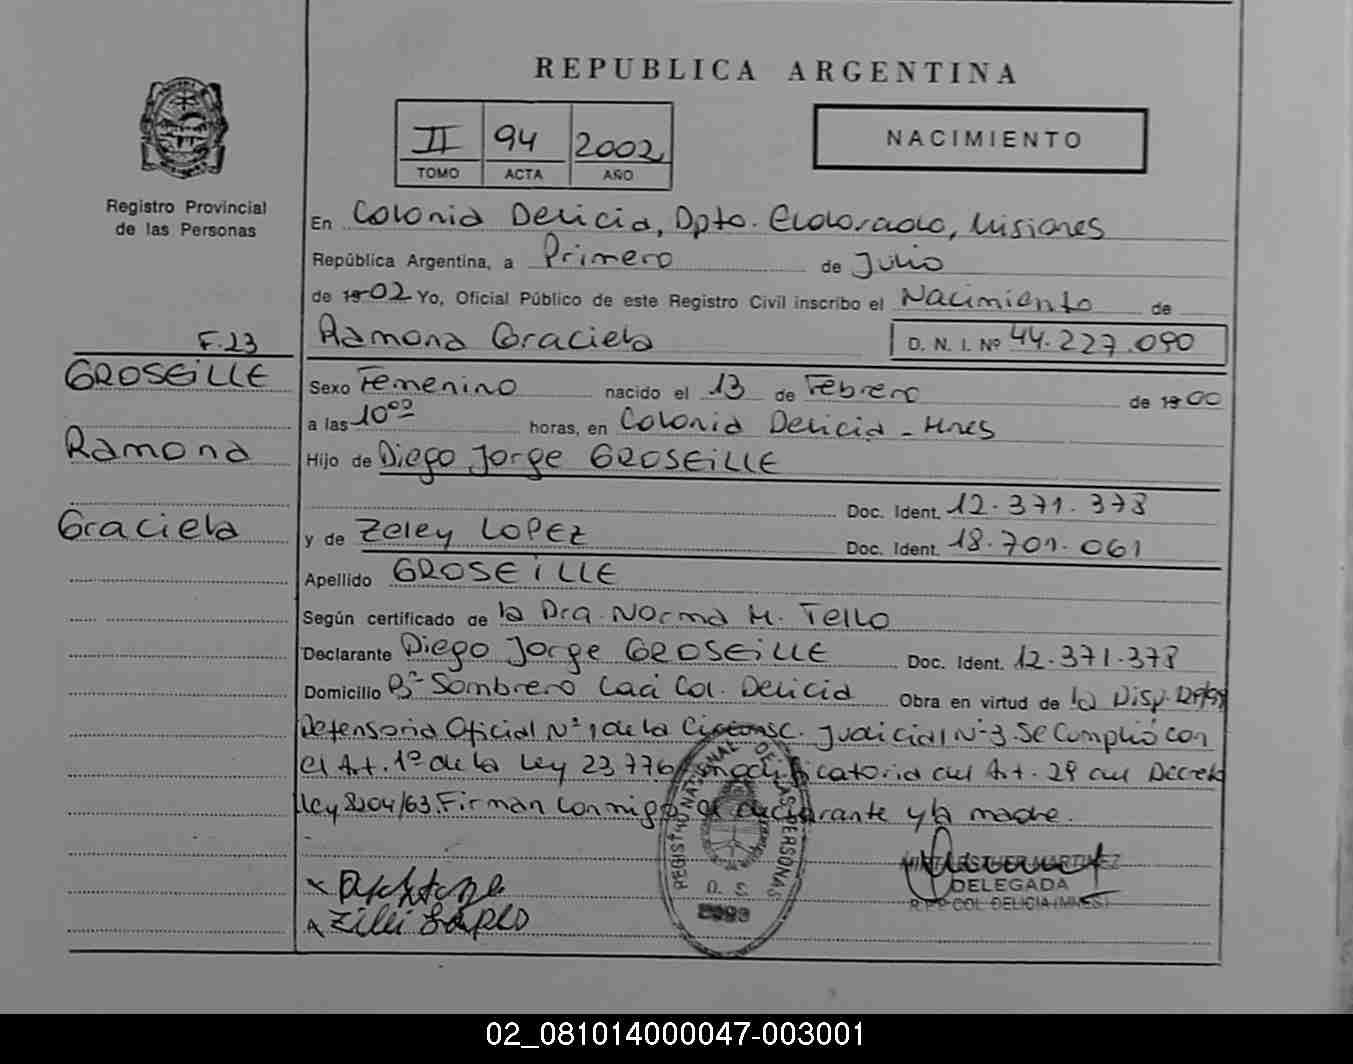 REPUBLICA ARGENTINA
II 94 2002
TOMO ACTA AÑO
NACIMIENTO
Registro Provincial
de las Personas
En Colonia Delicia, Dpto. Eldorado, Misiones
República Argentina, a Primero de Julio
de 19 02 Yo, Oficial Público de este Registro Civil inscribo el Nacimiento de
Ramona Graciela D. N. I. Nº 44.227.090
F.23
GROSEILLE
Ramona
Graciela
Sexo Femenino nacido el 13 de Febrero de 19 00
a las 10⁰⁰ horas, en Colonia Delicia - Mnes
Hijo de Diego Jorge GROSEILLE
Doc. Ident. 12.371.378
y de Zeley LOPEZ Doc. Ident. 18.701.061
Apellido GROSEILLE
Según certificado de la Dra. Norma M. Tello
Declarante Diego Jorge GROSEILLE Doc. Ident. 12.371.378
Domicilio Bº Sombrero Caci Col. Delicia Obra en virtud de la Disp.
Defensoria Oficial Nº 1 de la Circunsc. Judicial Nº 3 Se Cumplió con
el Art. 1º de la Ley 23776 modificatoria del Art. 29 del Decreto
Ley 8204/63. Firman conmigo el declarante y la madre.
REGISTRO NACIONAL DE LAS PERSONAS
O. S.
MIRTA ESTHER MARTINEZ
DELEGADA
R.P.P COL. DELICIA (MNES)
02_081014000047-003001